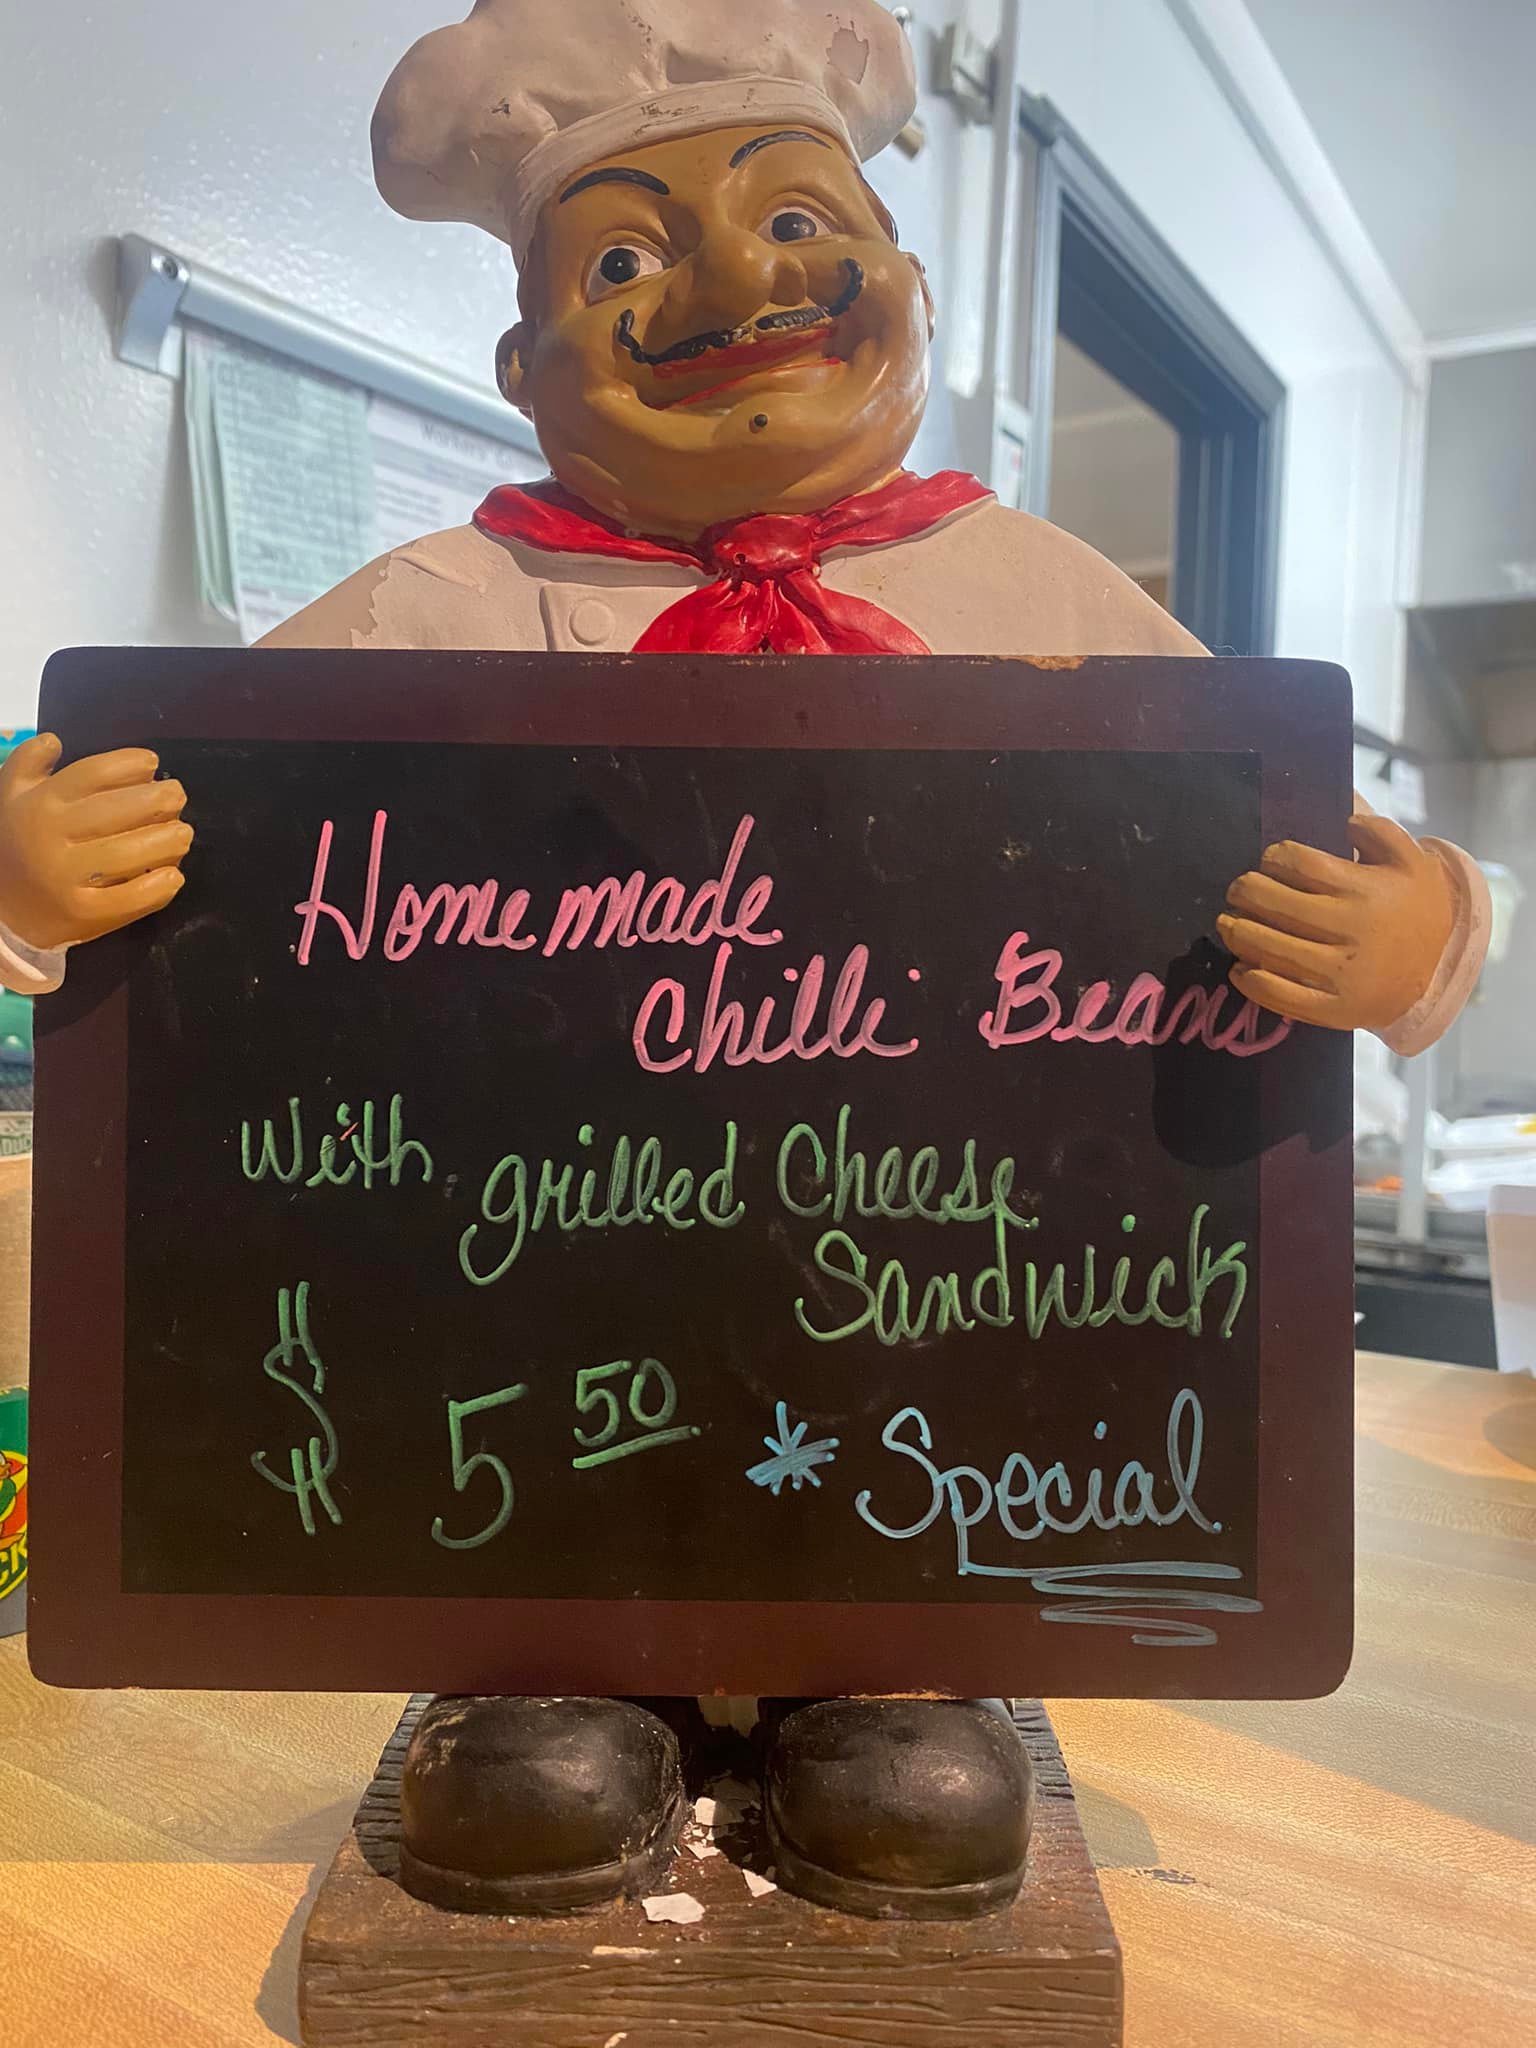 Homemade
Chilli Beans
With grilled Cheese
Sandwick
$ 5 50 * Special